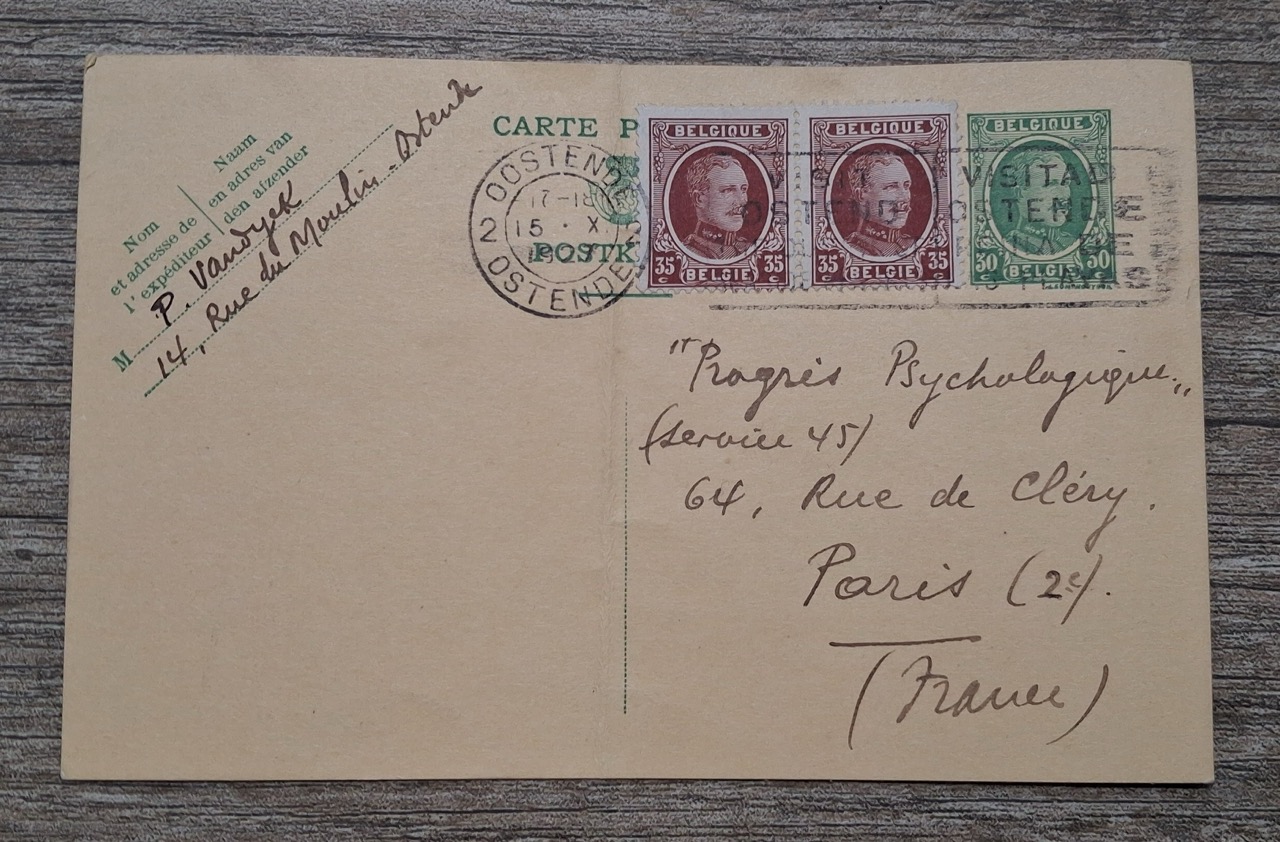 Nom
et adresse de
l'expéditeur
Naam
en adres van
den afzender
M P. Vandyck
14, Rue du Moulin - Ostende
CARTE P
POSTK
OOSTENDE 2
17-18
15 · X
OSTENDE 2
BELGIQUE
35 c BELGIË 35 c
BELGIQUE
35 c BELGIË 35 c
BELGIQUE
30 c BELGIË 30 c
VISIT
OSTEND
VISITAD
OSTENDE
"Progrès Psychologique"
(service 45)
64, Rue de Cléry.
Paris (2e).
(France)